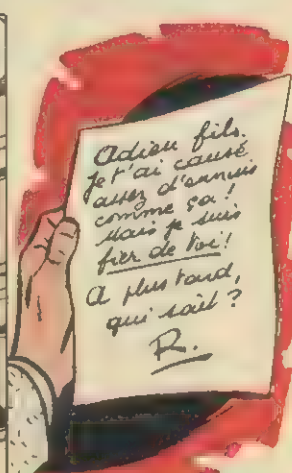 Adieu fils.
Je t'ai causé
assez d'ennuis
comme ça!
Mais je suis
fier de toi!
A plus tard,
qui sait?
R.